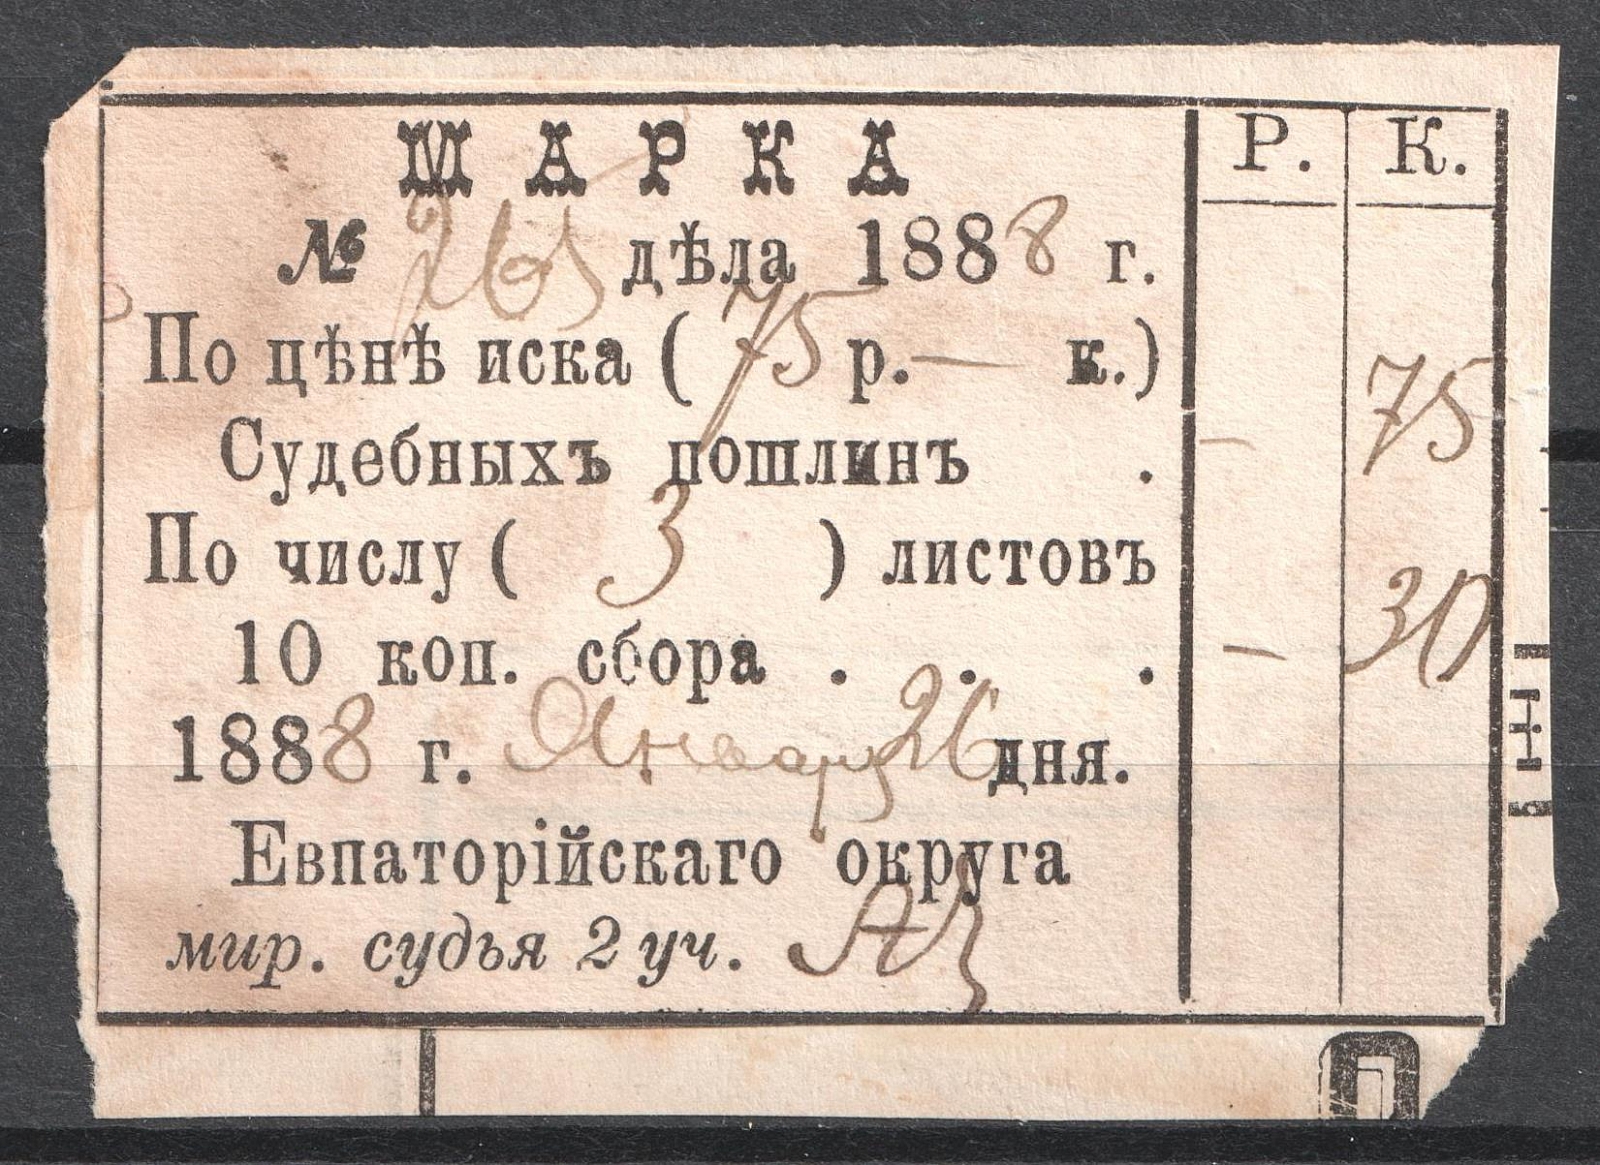 МАРКА
Р. К.
№ 265 дѣла 1888 г.
По цѣнѣ иска ( 75 р. — к.)
Судебныхъ пошлинъ . - 75
По числу ( 3 ) листовъ
10 коп. сбора . . . - 30
1888 г. Января 26 дня.
Евпаторійскаго округа
мир. судья 2 уч.